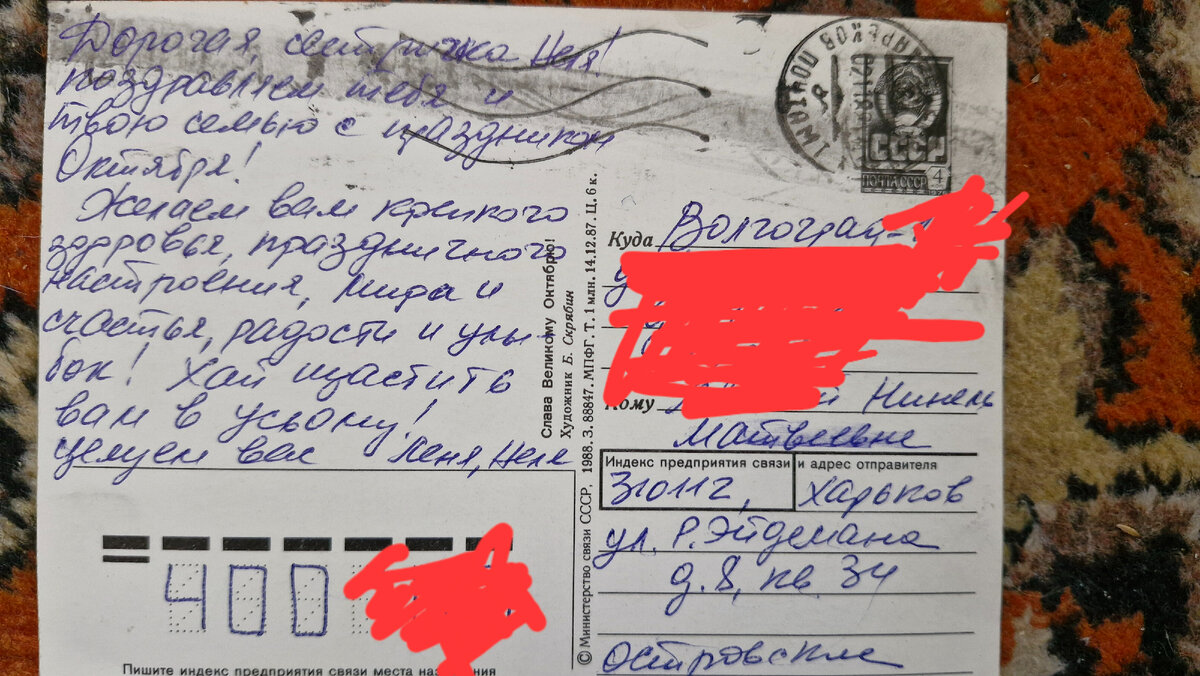 Дорогая, сестричка Неля!
поздравляем тебя и
твою семью с праздником
Октября!
Желаем вам крепкого
здоровья, праздничного
настроения, мира и
счастья, радости и улы-
бок! Хай щастить
вам в усьому!
Целуем вас Леня, Неля
Слава Великому Октябрю!
Художник Б. Скрябин
© Министерство связи СССР, 1988. З. 88847. МПФГ. Т. 1 млн. 14.12.87. Ц. 6 к.
СССР
ПОЧТА СССР 4
Куда Волгоград-
Кому Нинель
Матвеевне
Индекс предприятия связи и адрес отправителя
310112, Харьков
ул. Р. Эйдемана
д. 8, кв. 34
Островские
400
Пишите индекс предприятия связи места